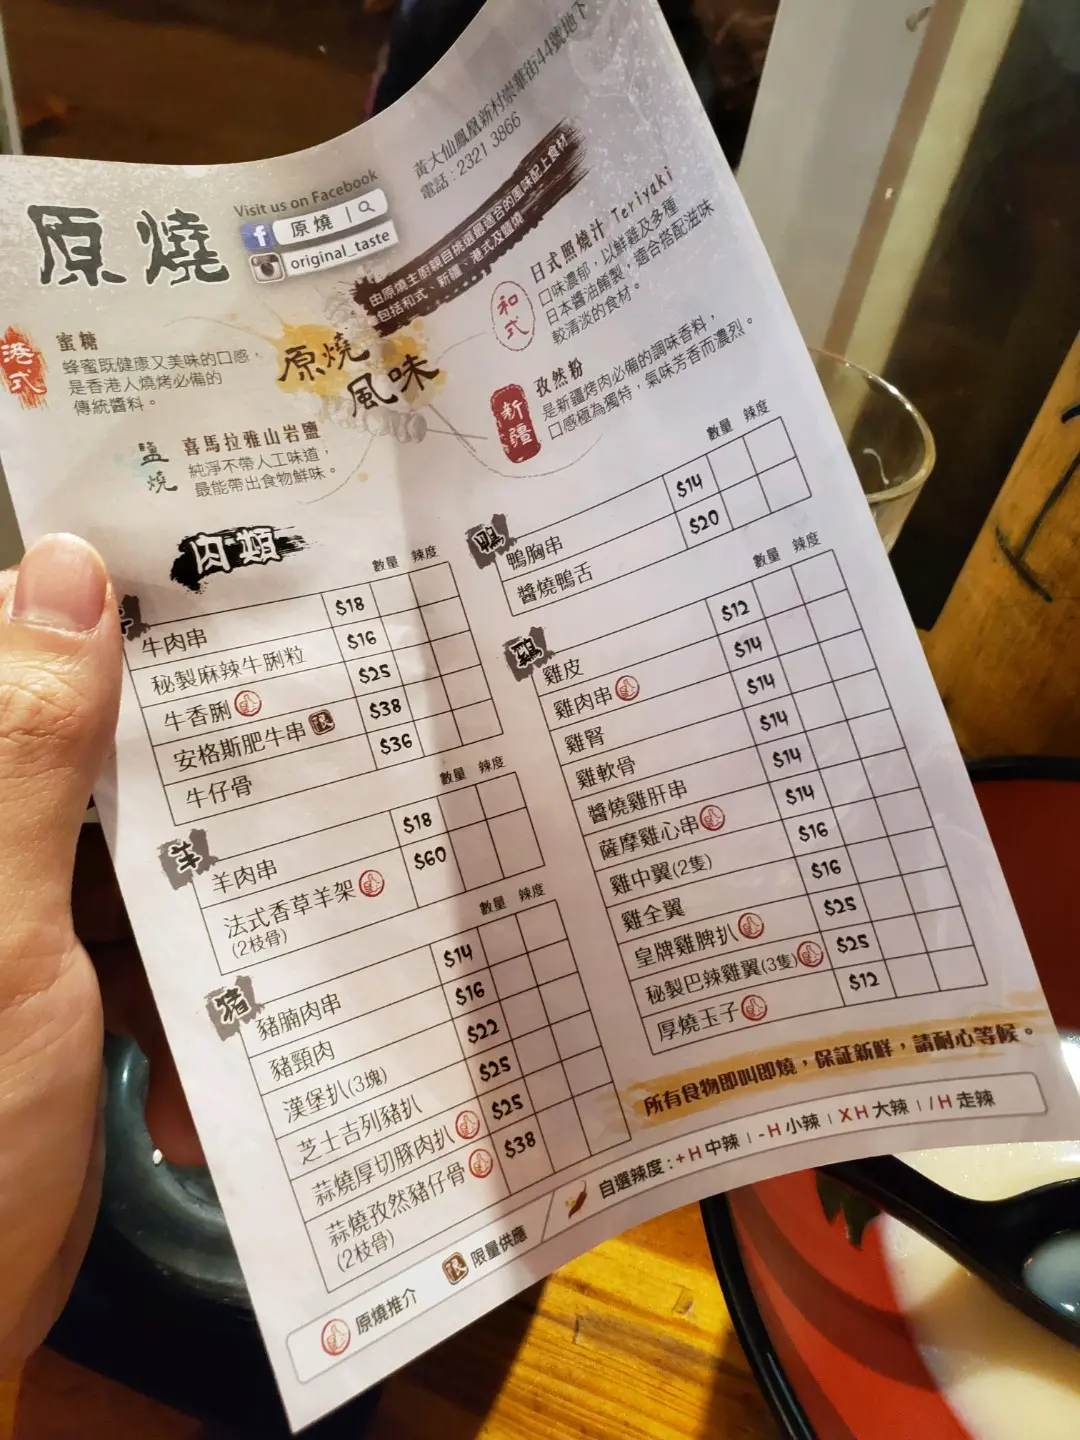 原燒
Visit us on Facebook
原燒
original_taste
黃大仙鳳凰新村崇華街44號地下
電話 : 2321 3866
由原燒主廚親自挑選最適合的風味配上食材
包括和式、新疆、港式及鹽燒
原燒
風味
港式
蜜糖
蜂蜜既健康又美味的口感，
是香港人燒烤必備的
傳統醬料。
鹽燒
喜馬拉雅山岩鹽
純淨不帶人工味道，
最能帶出食物鮮味。
和式
日式照燒汁 Teriyaki
口味濃郁，以鮮雞及多種
日本醬油餚製，適合搭配滋味
較清淡的食材。
新疆
孜然粉
是新疆烤肉必備的調味香料，
口感極為獨特，氣味芳香而濃烈。
肉類
數量 辣度
牛肉串 $18
秘製麻辣牛脷粒 $16
牛香脷 $25
安格斯肥牛串 限 $38
牛仔骨 $36
羊
數量 辣度
羊肉串 $18
法式香草羊架 $60
(2枝骨)
豬
數量 辣度
豬腩肉串 $14
豬頸肉 $16
漢堡扒(3塊) $22
芝士吉列豬扒 $25
蒜燒厚切豚肉扒 $25
蒜燒孜然豬仔骨 $38
(2枝骨)
鴨
數量 辣度
鴨胸串 $14
醬燒鴨舌 $20
雞
數量 辣度
雞皮 $12
雞肉串 $14
雞腎 $14
雞軟骨 $14
醬燒雞肝串 $14
薩摩雞心串 $14
雞中翼(2隻) $16
雞全翼 $16
皇牌雞脾扒 $25
秘製巴辣雞翼(3隻) $25
厚燒玉子 $12
所有食物即叫即燒，保証新鮮，請耐心等候。
原燒推介
限 限量供應
自選辣度 : +H 中辣 | -H 小辣 | XH 大辣 | /H 走辣